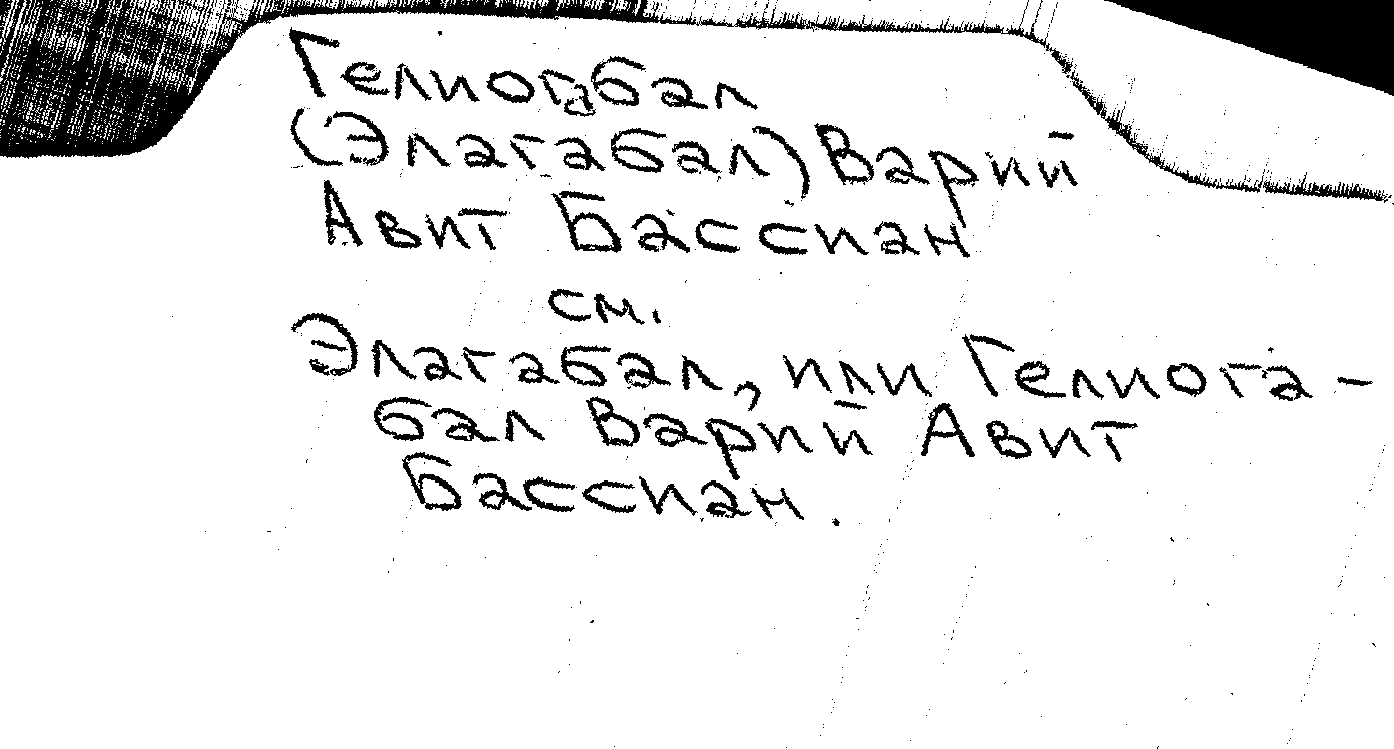 Гелиогабал
(Элагабал) Варий
Авит Бассиан
см.
Элагабал, или Гелиога-
бал Варий Авит
Бассиан.